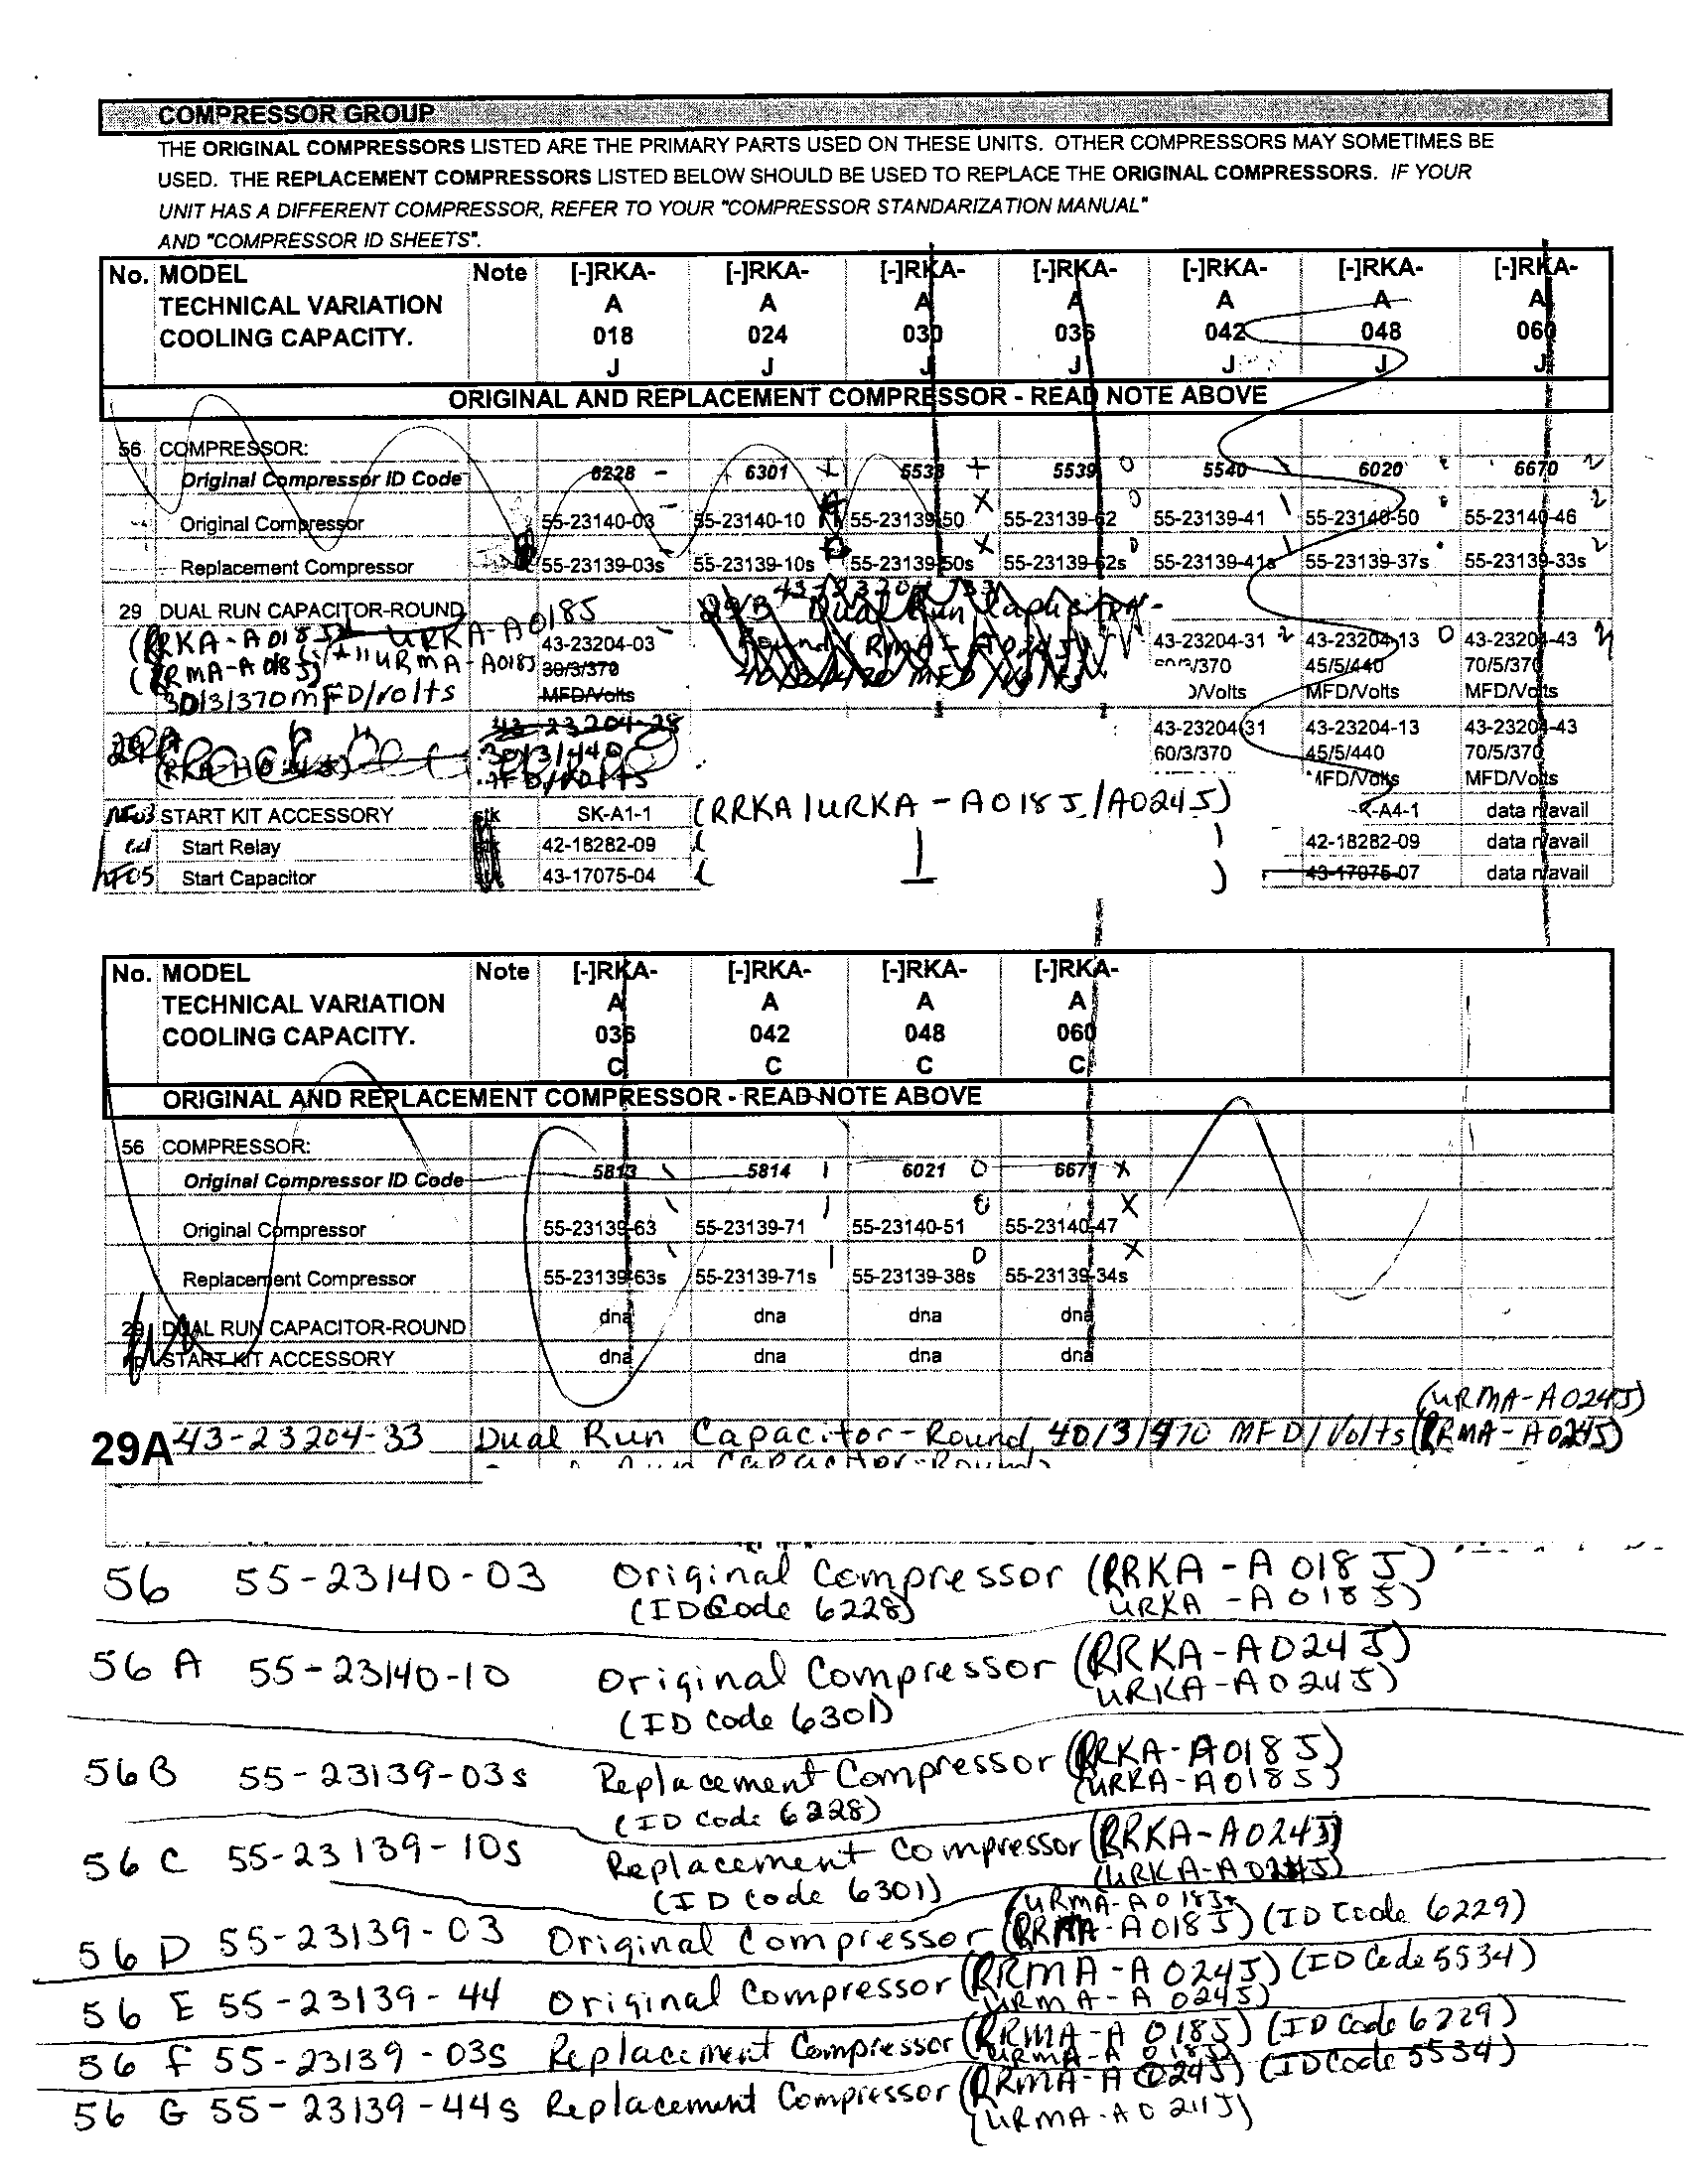 COMPRESSOR GROUP
THE ORIGINAL COMPRESSORS LISTED ARE THE PRIMARY PARTS USED ON THESE UNITS. OTHER COMPRESSORS MAY SOMETIMES BE
USED. THE REPLACEMENT COMPRESSORS LISTED BELOW SHOULD BE USED TO REPLACE THE ORIGINAL COMPRESSORS. IF YOUR
UNIT HAS A DIFFERENT COMPRESSOR, REFER TO YOUR "COMPRESSOR STANDARIZATION MANUAL"
AND "COMPRESSOR ID SHEETS".
No. MODEL Note [-]RKA- [-]RKA- [-]RKA- [-]RKA- [-]RKA- [-]RKA- [-]RKA-
TECHNICAL VARIATION A A A A A A A
COOLING CAPACITY. 018 024 030 036 042 048 060
J J J J J J J
ORIGINAL AND REPLACEMENT COMPRESSOR - READ NOTE ABOVE
56 COMPRESSOR:
Original Compressor ID Code 6228 6301 5538 5539 5540 6020 6670
Original Compressor 55-23140-03 55-23140-10 55-23139-50 55-23139-62 55-23139-41 55-23140-50 55-23140-46
Replacement Compressor 55-23139-03s 55-23139-10s 55-23139-50s 55-23139-62s 55-23139-41s 55-23139-37s 55-23139-33s
29 DUAL RUN CAPACITOR-ROUND
(RRKA-A018J URKA-A018J 43-23204-03 43-23204-31 43-23204-13 43-23204-43
(RRMA-A018J) URMA-A018J 30/3/370 /370 45/5/440 70/5/370
30/3/370 MFD/Volts MFD/Volts /Volts MFD/Volts MFD/Volts
43-23204-28 43-23204-31 43-23204-13 43-23204-43
60/3/370 45/5/440 70/5/370
MFD/Volts MFD/Volts
START KIT ACCESSORY stk SK-A1-1 (RRKA/URKA-A018J/A024J) -A4-1 data n/avail
Start Relay 42-18282-09 ( ) 42-18282-09 data n/avail
Start Capacitor 43-17075-04 ( ) 43-17075-07 data n/avail
No. MODEL Note [-]RKA- [-]RKA- [-]RKA- [-]RKA-
TECHNICAL VARIATION A A A A
COOLING CAPACITY. 036 042 048 060
C C C C
ORIGINAL AND REPLACEMENT COMPRESSOR - READ NOTE ABOVE
56 COMPRESSOR:
Original Compressor ID Code 5813 5814 6021 6671
Original Compressor 55-23139-63 55-23139-71 55-23140-51 55-23140-47
Replacement Compressor 55-23139-63s 55-23139-71s 55-23139-38s 55-23139-34s
29 DUAL RUN CAPACITOR-ROUND dna dna dna dna
START KIT ACCESSORY dna dna dna dna
(URMA-A024J)
29A 43-23204-33 Dual Run Capacitor-Round, MFD/Volts (RRMA-A024J)
56 55-23140-03 Original Compressor (RRKA-A018J)
(ID Code 6228) URKA-A018J)
56 A 55-23140-10 Original Compressor (RRKA-A024J)
(ID Code 6301) URKA-A024J)
56B 55-23139-03s Replacement Compressor (RRKA-A018J)
(ID Code 6228) (URKA-A018J)
56 C 55-23139-10s Replacement Compressor (RRKA-A024J)
(ID Code 6301) (URKA-A024J)
(URMA-A018J)
56 D 55-23139-03 Original Compressor (RRMA-A018J) (ID Code 6229)
56 E 55-23139-44 Original Compressor (RRMA-A024J) (ID Code 5534)
URMA-A024J)
56 F 55-23139-03s Replacement Compressor (RRMA-A018J) (ID Code 6229)
URMA-A018J)
56 G 55-23139-44s Replacement Compressor (RRMA-A024J) (ID Code 5534)
(URMA-A024J)